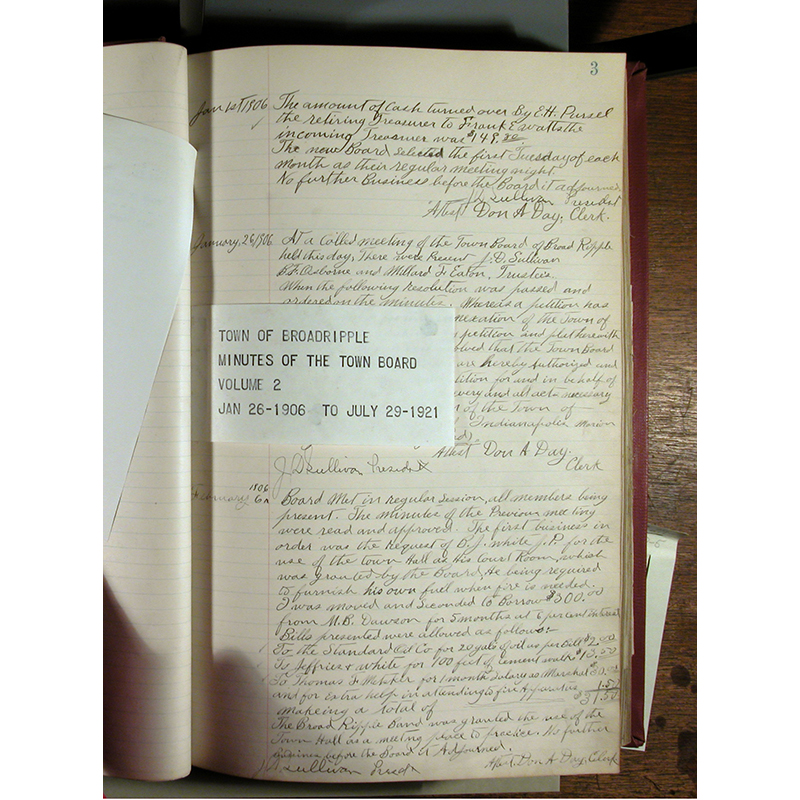 3
Jan 1st 1906 The amount of Cash turned over By E.H. Pursel
the retiring Treasurer to Frank E Watts the
incoming Treasurer was $149.
The new Board Selected the first Tuesday of each
month as their regular meeting night.
No further Business before the Board it adjourned
J D Sullivan President
Attest Don A Day, Clerk.
January, 26/1906 At a Called meeting of the Town Board of Broad Ripple
held this day, There were Present J. D. Sullivan
B.F. Osborne and Millard F Eaton, Trustees.
When the following resolution was passed and
ordered on the minutes. Whereas a petition has
annexation of the Town of
petition and plat herewith
resolved that the Town Board
are hereby Authorized and
petition for and in behalf of
every and all acts necessary
of the Town of
Indianapolis Marion
TOWN OF BROADRIPPLE
MINUTES OF THE TOWN BOARD
VOLUME 2
JAN 26-1906 TO JULY 29-1921
Attest Don A Day.
Clerk
J D Sullivan President
1906
February 6th Board Met in regular Session, all members being
present. The minutes of the Previous meeting
were read and approved. The first business in
order was the Request of B. J. White J.P. for the
use of the town Hall as His Court Room, which
was granted by the Board, He being required
to furnish his own fuel when fire is needed.
I was moved and Seconded to Borrow $300.00
from M.B. Dawson for 5 months at 6 percent interest
Bills presented were allowed as follows:-
To the Standard Oil Co for 20 gals of oil as per Bill $2.00
To Jeffries & White for 100 feet of cement walk $13.50
To Thomas F Metcher for 1 month Salary as Marshal $30.00
and for Extra help in attending to fire Aparatus 1.50
makeing a total of $31.50
The Broad Ripple Band was granted the use of the
Town Hall as a meeting place to practice. No further
business before the Board it Adjourned.
J D Sullivan Presdt
Attest, Don A Day, Clerk